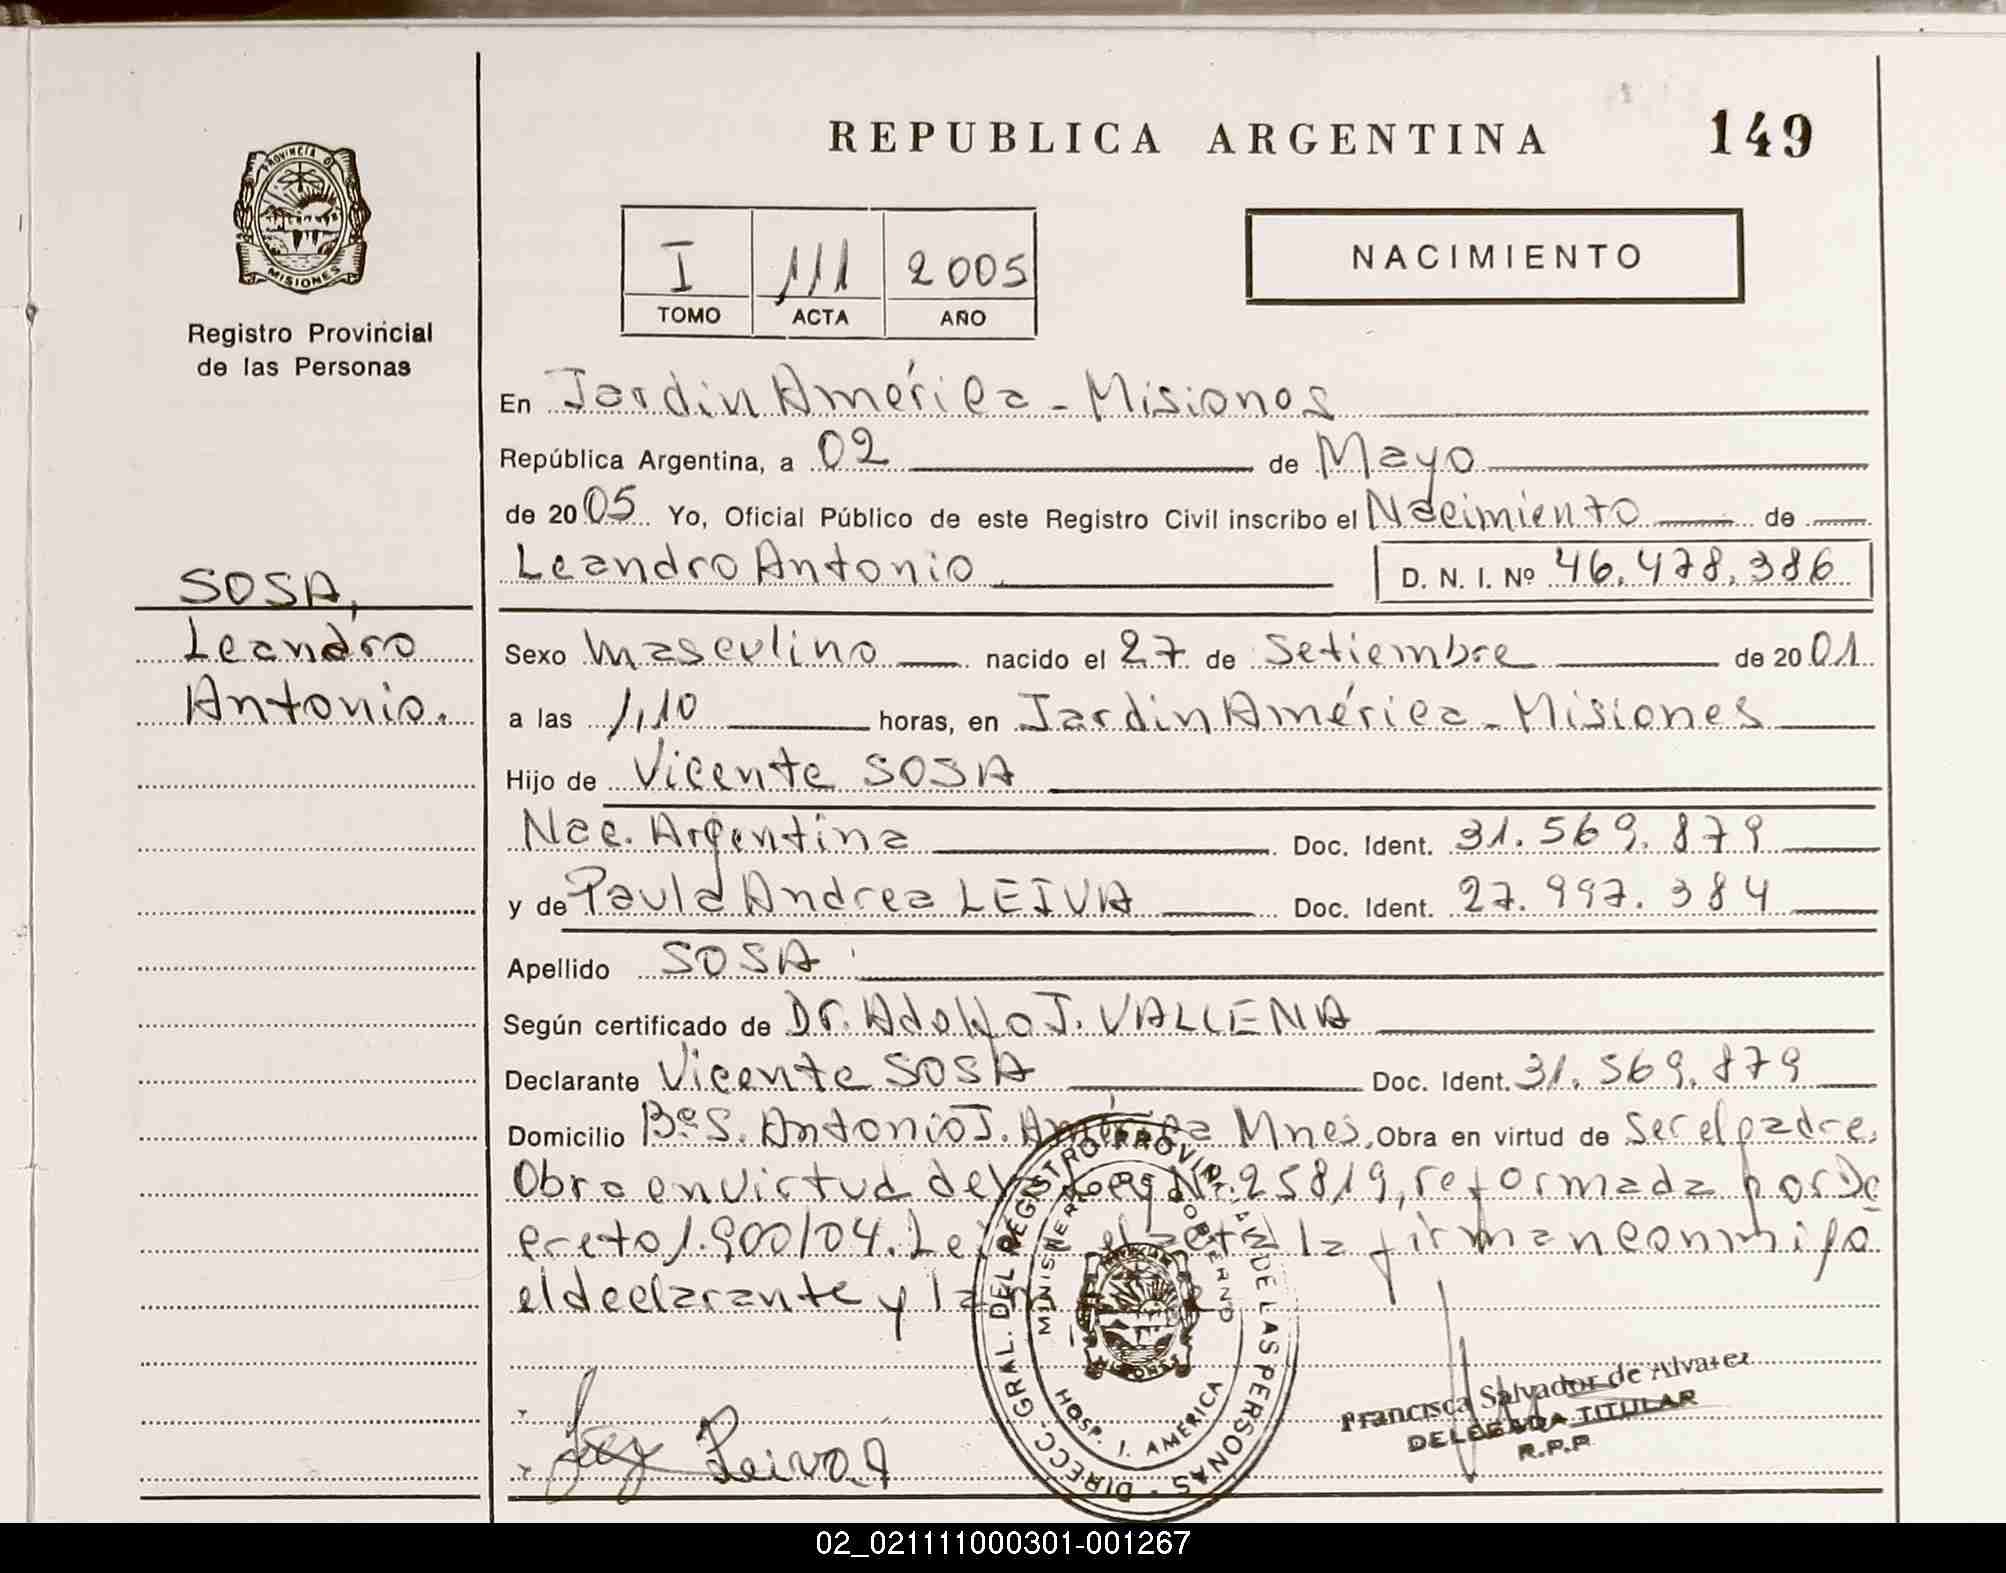 REPUBLICA ARGENTINA
149
PROVINCIA D
MISIONES
Registro Provincial
de las Personas
I 111 2005
TOMO ACTA AÑO
NACIMIENTO
En Jardin América - Misiones
República Argentina, a 02 de Mayo
de 2005 Yo, Oficial Público de este Registro Civil inscribo el Nacimiento de
Leandro Antonio D. N. I. Nº 46.478.386
SOSA,
Leandro
Antonio.
Sexo Masculino nacido el 27 de Setiembre de 2001
a las 1,10 horas, en Jardin América - Misiones
Hijo de Vicente SOSA
Nac. Argentina Doc. Ident. 31.569.879
y de Paula Andrea LEIVA Doc. Ident. 27.997.384
Apellido SOSA
Según certificado de Dr. Adolfo J. VALLENA
Declarante Vicente SOSA Doc. Ident. 31.569.879
Domicilio Bº S. Antonio J. América Mnes, Obra en virtud de ser el padre.
Obra en virtud de Ley Nº 25819, reformada por De
creto 1.900/04. acta la firman conmigo
el declarante y la
DIRECC. GRAL. DEL REGISTRO PROVINCIAL DE LAS PERSONAS
MINISTERIO GOBIERNO
HOSP. J. AMERICA
Leiva
Francisca Salvador de Alvarez
DELEGADA TITULAR
R.P.P.
02_021111000301-001267